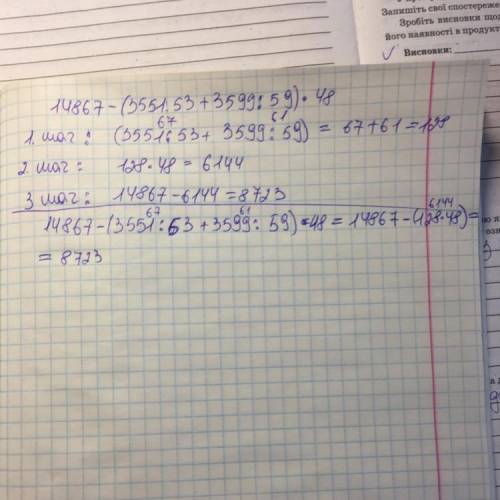 Запишіть свої спостереже
Зробіть висновки що
його наявності в продукт
Висновки:
14867-(3551:53+3599:59)·48
67 61
1. шаг: (3551:53+3599:59) = 67+61=128
2 шаг: 128·48 = 6144
3 шаг: 14867-6144=8723
67 61 6144
14867-(3551:53+3599:59)·48=14867-(128·48)=
= 8723